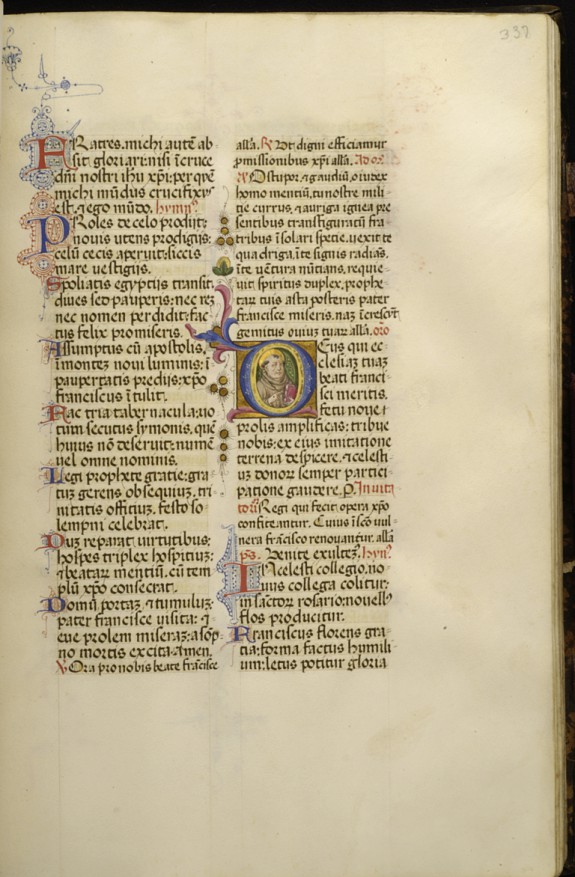 337
FRatres. michi autē ab
sit gloriari: nisi ī cruce
dñi nostri ihu xp̄i: per quē
michi mūdus crucifixus
est. ⁊ ego mūdo. hymn9.
PRoles de celo prodijt:
nouis utens prodigijs:
celū cecis aperuit: siccis
mare uestigijs.
Spoliatis egyptijs transit.
diues sed pauperis: nec rez
nec nomen perdidit: fac
tus felix pro miseris.
Assumptus cū apostolis.
ī montez noui luminis: ī
paupertatis predijs: xp̄o
franciscus ītulit.
Fac tria tabernacula: uo
tum secutus symonis. quē
huius nō deseruit: numē
uel omne nominis.
Legi prophete gratie: gra
tuz gerens obsequiuz. tri
nitatis officiuz. festo so
lempni celebrat.
Duz reparat uirtutibus:
hospes triplex hospitiuz:
⁊ beataz mentiū. cū tem
plū xp̄o consecrat.
Domū portaz ⁊ tumuluz.
pater francisce uisita: ⁊
eue prolem miseraz: a sōp
no mortis excita. Amen.
℣ Ora pro nobis beate francisce
alla. ℟ Ut digni efficiamur
ꝓmissionibus xp̄i alla. Ad
O stupor. ⁊ gaudiū. o iudex
homo mentiū. tu nostre mili
tie currus. ⁊ auriga ignea pre
sentibus transfiguratū fra
tribus ī solari specie. uexit te
quadriga. ī te signis radiās.
ī te uētura nūtians. requie
uit spiritus duplex. prophe
tar tuis asta posteris pater
francisce miseris. naz īcrescūt
gemitus ouiuz tuar alla. oro
DEus qui ec
clesiaz tuaz
beati franci
sci meritis.
fetu noue
prolis amplificas: tribue
nobis: ex eius imitatione
terrena despicere. ⁊ celesti
uz donor semper partici
patione gaudere. P. Inuita
toriū Regi qui fecit opera xp̄o
confiteantur. Cuius ī scō uul
nera frācisco renouantur. alla
ps. Venite exultez. hyn9
IN celesti collegio. no
uus collega colitur:
in sāctor rosario: nouell9
flos producitur.
Franciscus florens gra
tia: forma factus humili
um: letus potitur gloria